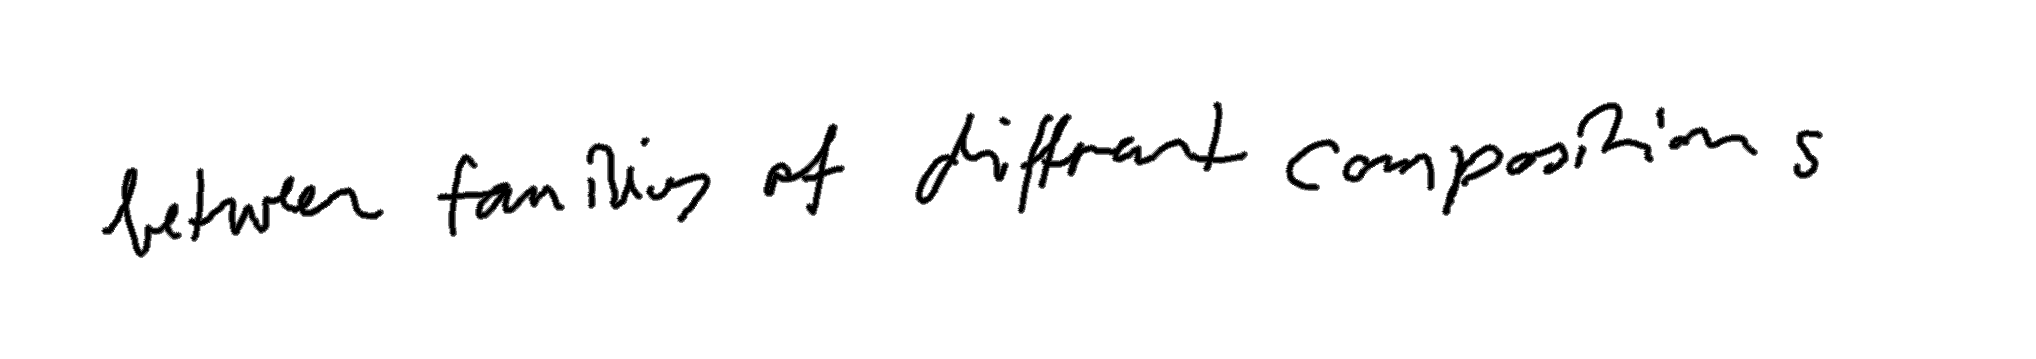 between families of different compositions